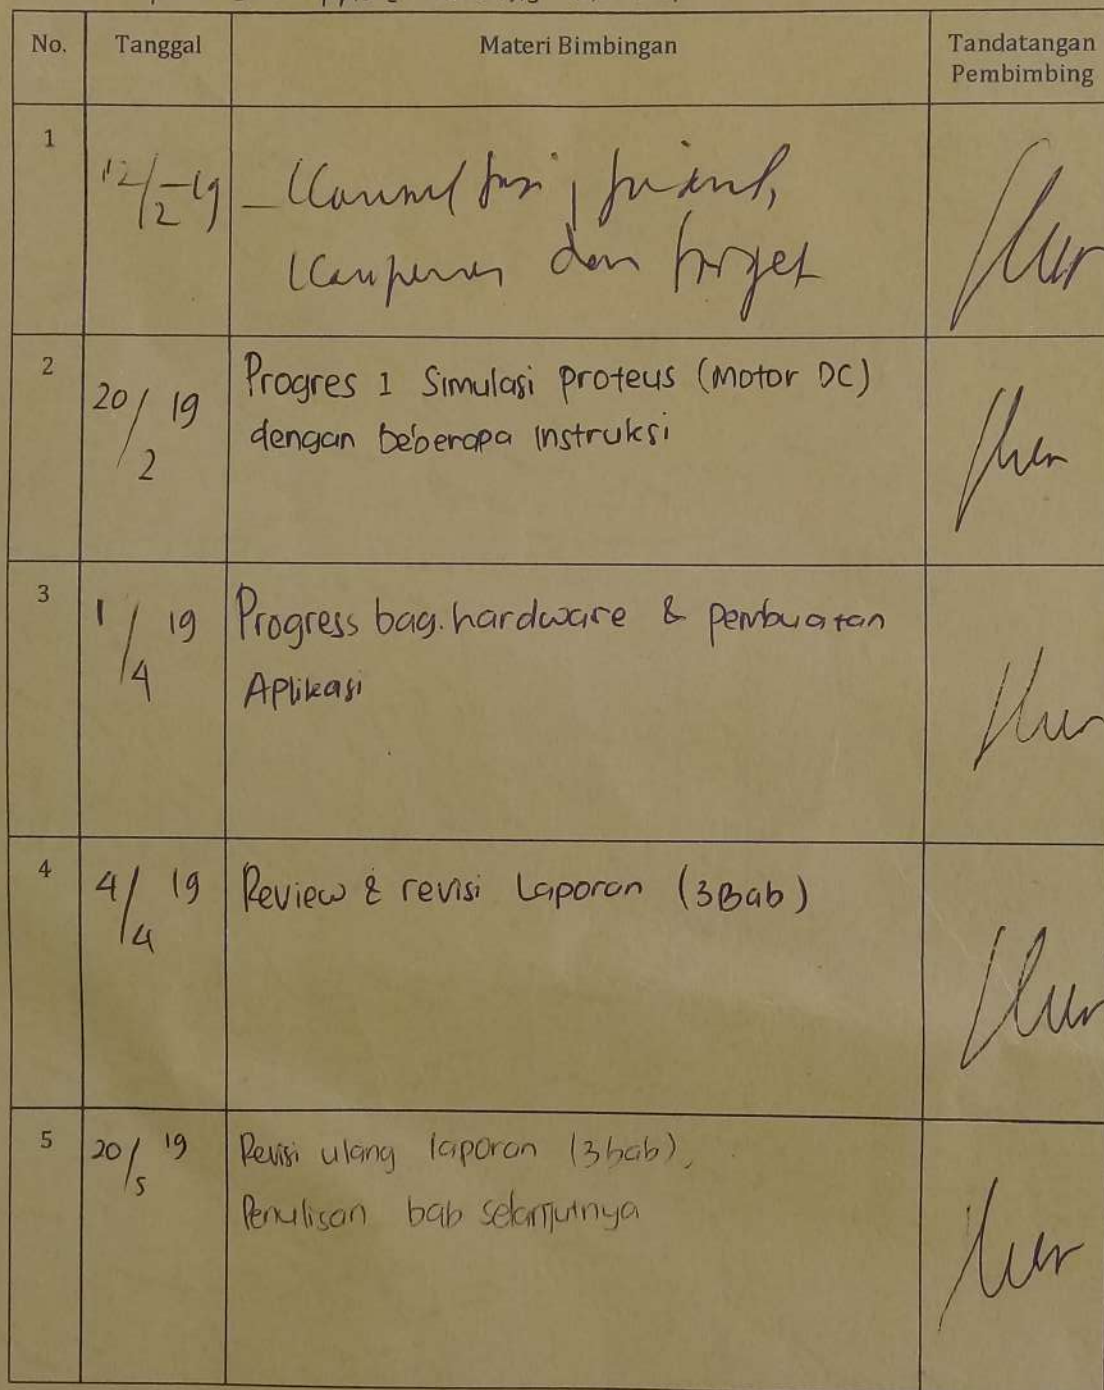 No. Tanggal Materi Bimbingan Tandatangan
Pembimbing
1
12/2-19 - Konsultasi,
dan target
2
20/2 19 Progres 1 Simulasi proteus (Motor DC)
dengan beberapa instruksi
3
1/4 19 Progress bag. hardware & pembuatan
Aplikasi
4
4/4 19 Review & revisi Laporan (3Bab)
5
20/5 19 Revisi ulang laporan (3bab),
Penulisan bab selanjutnya